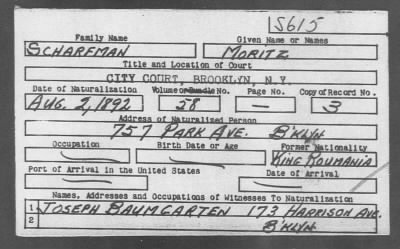 S615
Family Name
Given Name or Names
SCHARFMAN
MORITZ
Title and Location of Court
CITY COURT, BROOKLYN, N.Y.
Date of Naturalization
Volume or Bundle No.
Page No.
Copy of Record No.
AUG. 2, 1892
58
—
3
Address of Naturalized Person
757 PARK AVE. B'KLYN
Occupation
Birth Date or Age
Former Nationality
KING ROUMANIA
Port of Arrival in the United States
Date of Arrival
Names, Addresses and Occupations of Witnesses To Naturalization
1 JOSEPH BAUMGARTEN 173 HARRISON AVE.
2 B'KLYN